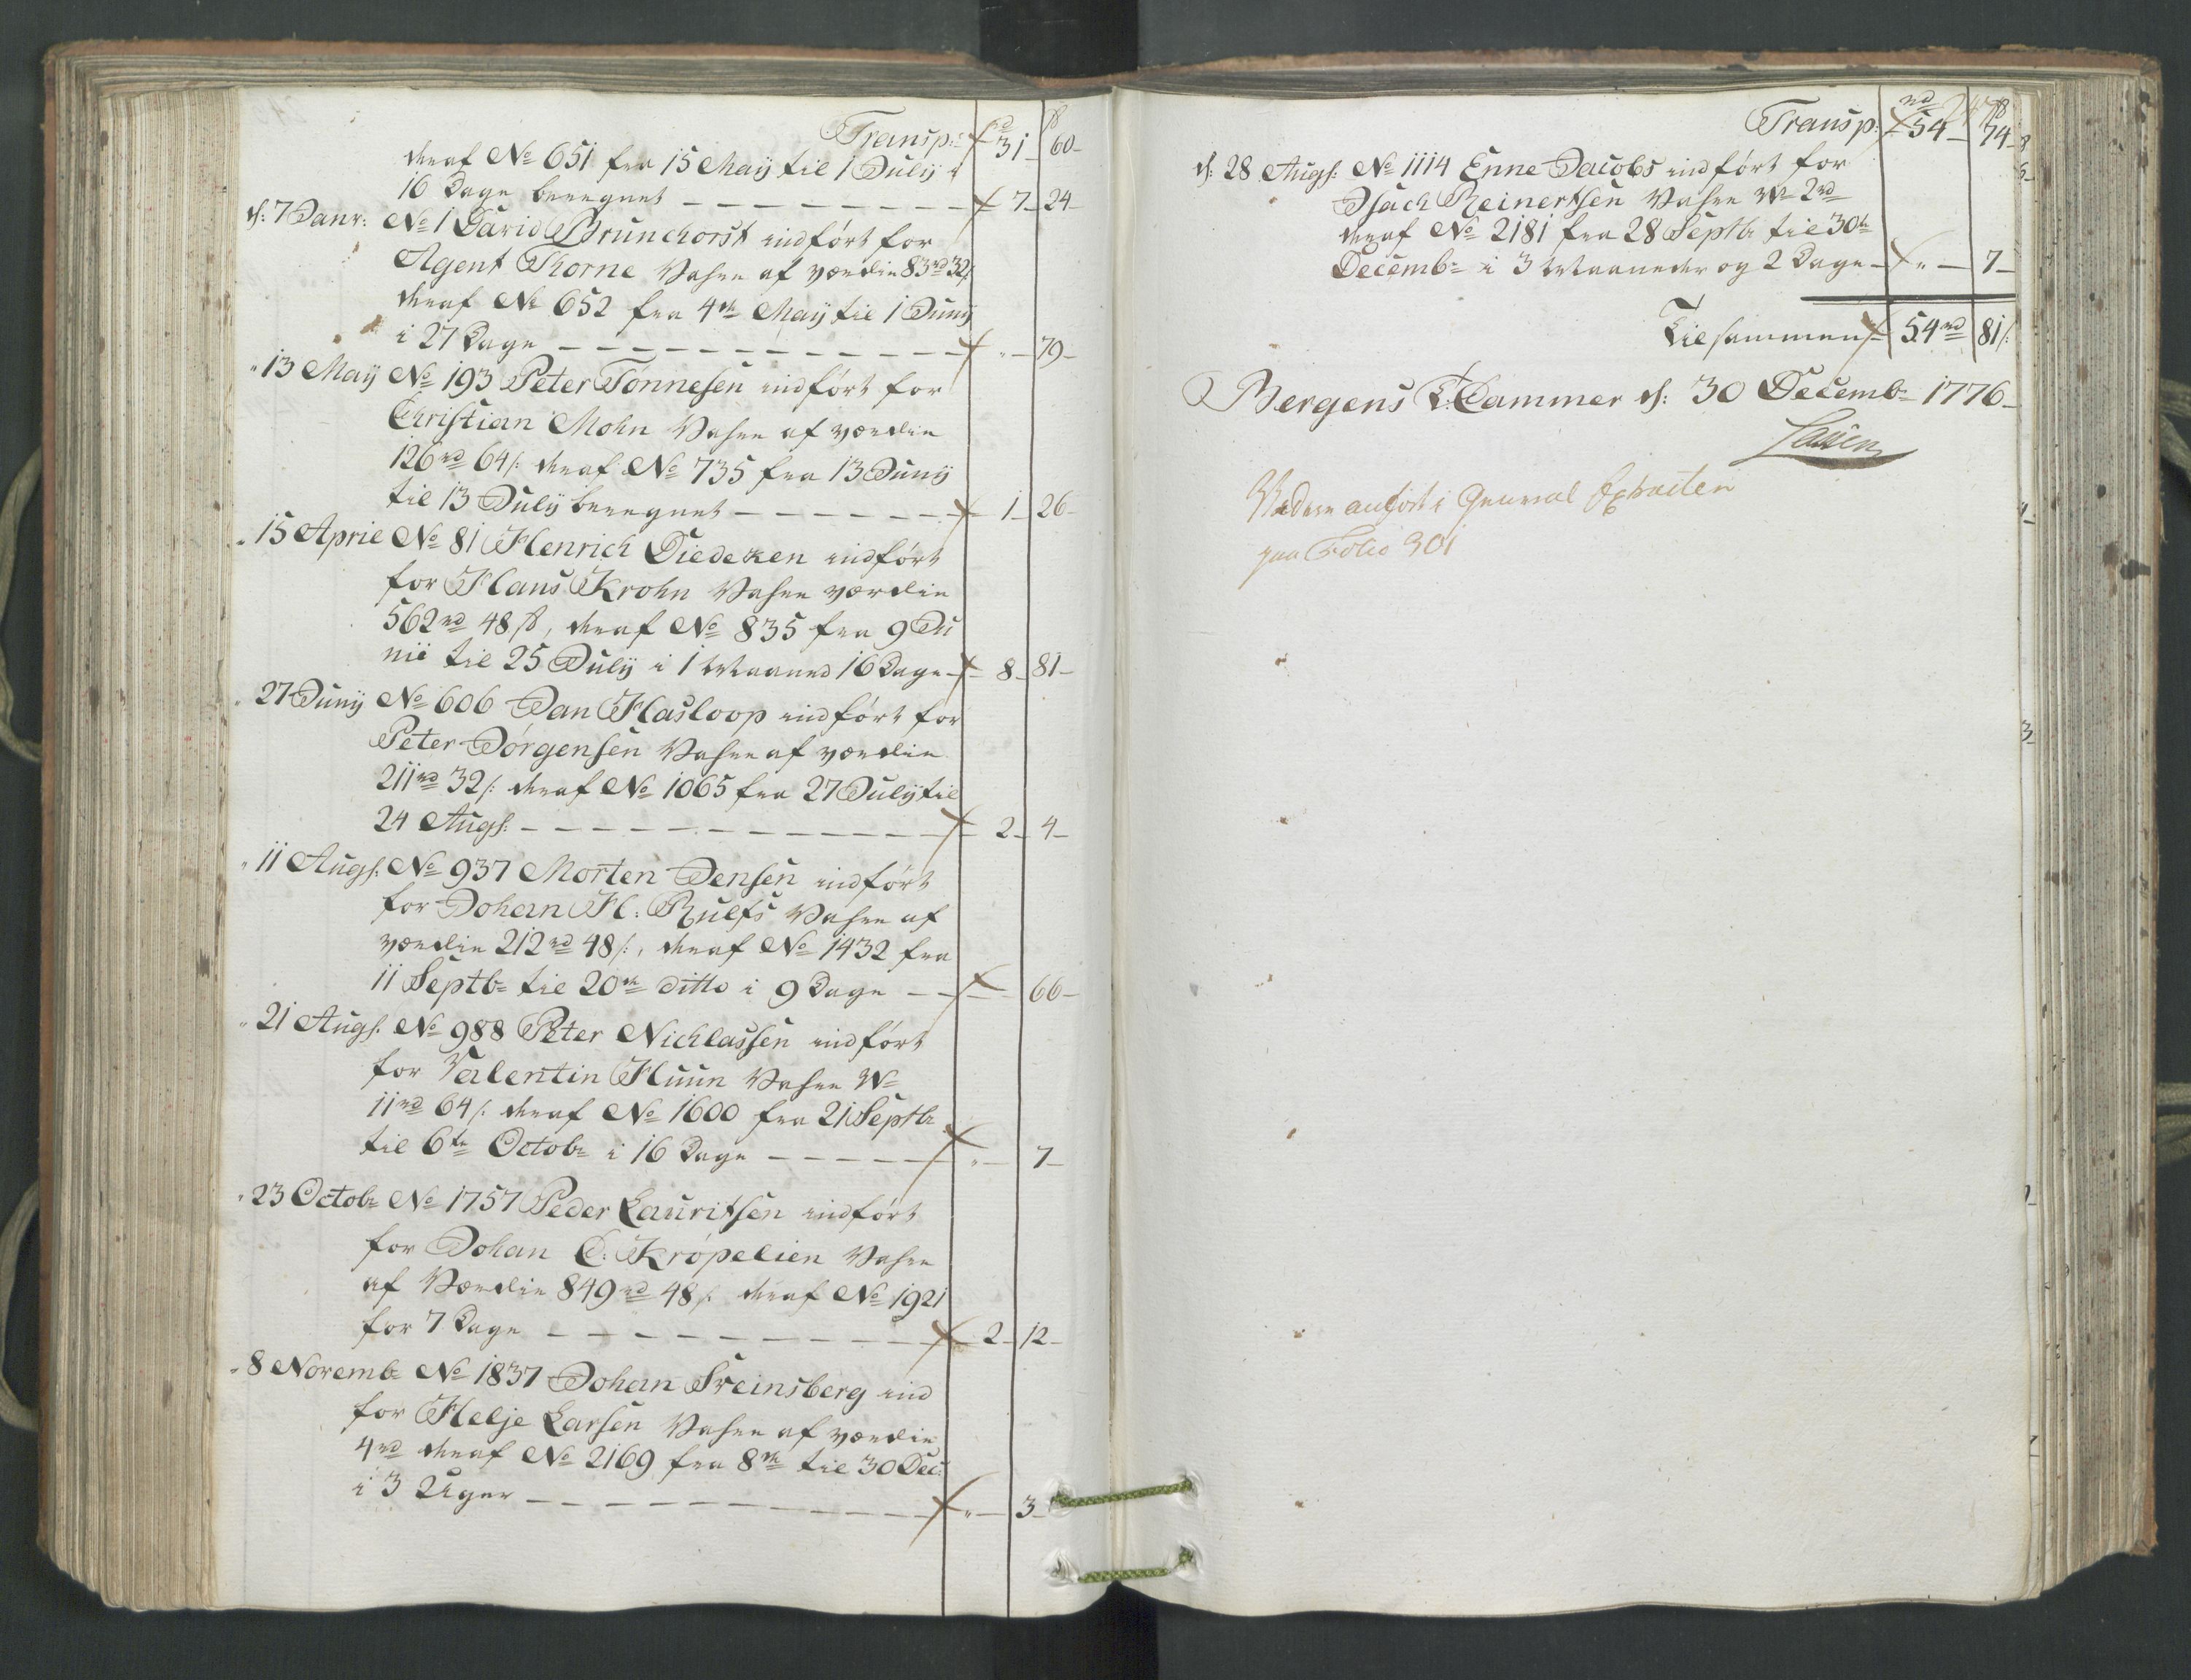 rd ß
Transp: 31 60
deraf No 651 fra 15 Maÿ til 1 Julÿ i
16 Dage beregnet — 7 24
d: 7 Janr: No 1 David Brunchorst indført for
Agent Thorne Vahre af værdie 83rd 32/:
deraf No 652 fra 4de Maÿ til 1 Junÿ
i 27 Dage — " 79
" 13 Maÿ No 193 Peter Tønnesen indført for
Christian Mohn Vahre af værdie
126rd 64/: deraf No 735 fra 13 Junÿ
til 13 Julÿ beregnet — 1 26
" 15 April No 81 Henrich Diedeken indført
for Hans Krohn Vahre værdie
562rd 48ß, deraf No 835 fra 9 Ju
nii til 25 Julÿ i 1 Maaned 16 Dage 8 81
" 27 Junÿ No 606 Jan Hasloop indført for
Peter Jørgensen Vahre af værdie
211rd 32/: deraf No 1065 fra 27 Julÿ til
24 Augs: — 2 4
" 11 Augs: No 937 Morten Jensen indført
for Johan H: Rulfs Vahre af
værdie 212rd 48/:, deraf No 1432 fra
11 Septb= til 20de ditto i 9 Dage — 66
" 21 Augs: No 988 Peter Nichlassen indført
for Valentin Huun Vahre W=
11rd 64/: deraf No 1600 fra 21 Septb
til 6te Octob= i 16 Dage — " 7
" 23 Octob= No 1757 Peder Lauritsen indført
for Johan C: Krøpelien Vahre
af Værdie 849rd 48/: deraf No 1921
for 7 Dage — 2 12
" 8 Novemb= No 1837 Johan Steinsberg ind
for Helje Larsen Vahre af værdie
4rd deraf No 2169 fra 8de til 30 Dec:
i 3 Uger — " 3
rd ß
Transp: 54 74
d: 28 Augs: No 1114 Enne Jacobs indført for
Isach Reinertsen Vahre W= 2rd
deraf No 2181 fra 28 Septb= til 30te
Decemb= i 3 Maaneder og 2 Dage — " 7
Tilsammen 54rd 81/:
Bergens T: Cammer d: 30 Decemb= 1776
Viidere anført i General Extracten
paa Folio 301